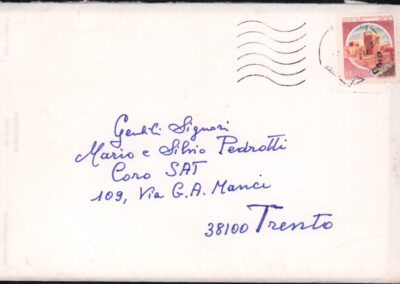 Gentili Signori
Mario e Silvio Pedrotti
Coro SAT
109, Via G.A. Manci
38100 Trento